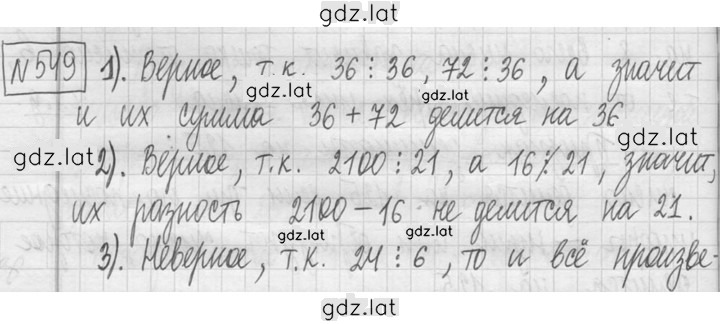 gdz.lat
№549 1). Верное, т.к. 36 ⋮ 36, 72 ⋮ 36, а значит
gdz.lat
и их сумма 36 + 72 делится на 36
gdz.lat
gdz.lat
2). Верное, т.к. 2100 ⋮ 21, а 16 ⋮̸ 21, значит,
их разность 2100 - 16 не делится на 21.
gdz.lat gdz.lat
3). Неверное, т.к. 24 ⋮ 6, то и всё произве-
gdz.lat